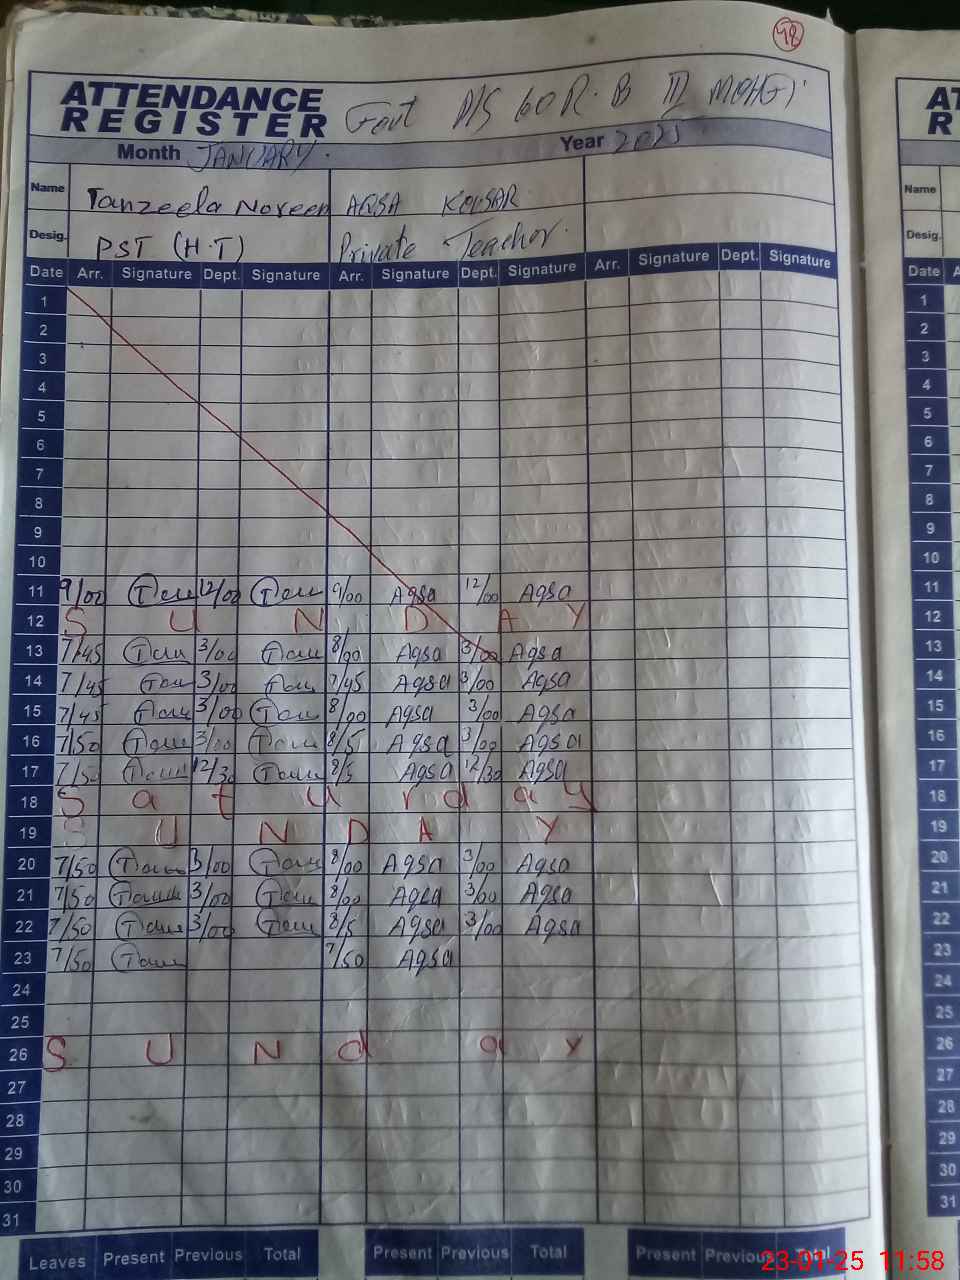 98
ATTENDANCE REGISTER Govt P/S 60 R.B III
Month JANUARY. Year 2025
Name Tanzeela Noreen AQSA KOUSAR
Desig. PST (H.T) Private Teacher.
Date Arr. Signature Dept. Signature Arr. Signature Dept. Signature Arr. Signature Dept. Signature
1
2
3
4
5
6
7
8
9
10
11 9/00 Tan 12/00 Tan 9/00 Aqsa 12/00 Aqsa
12 S U N D A Y
13 7/45 Tan 3/00 Tan 8/00 Aqsa 3/00 Aqsa
14 7/45 Tan 3/00 Tan 7/45 Aqsa 3/00 Aqsa
15 7/45 Tan 3/00 Tan 8/00 Aqsa 3/00 Aqsa
16 7/50 Tan 3/00 Tan 8/5 Aqsa 3/00 Aqsa
17 7/50 Tan 12/30 Tan 8/5 Aqsa 12/30 Aqsa
18 S a t u r d a y
19 S U N D A Y
20 7/50 Tan 3/00 Tan 8/00 Aqsa 3/00 Aqsa
21 7/50 Tan 3/00 Tan 8/00 Aqsa 3/00 Aqsa
22 7/50 Tan 3/00 Tan 8/5 Aqsa 3/00 Aqsa
23 7/50 Tan 7/50 Aqsa
24
25
26 S U N d a y
27
28
29
30
31
Leaves Present Previous Total Present Previous Total Present Previous Total
AT
R
Name
Desig.
Date A
1
2
3
4
5
6
7
8
9
10
11
12
13
14
15
16
17
18
19
20
21
22
23
24
25
26
27
28
29
30
31
23-01-25 11:58